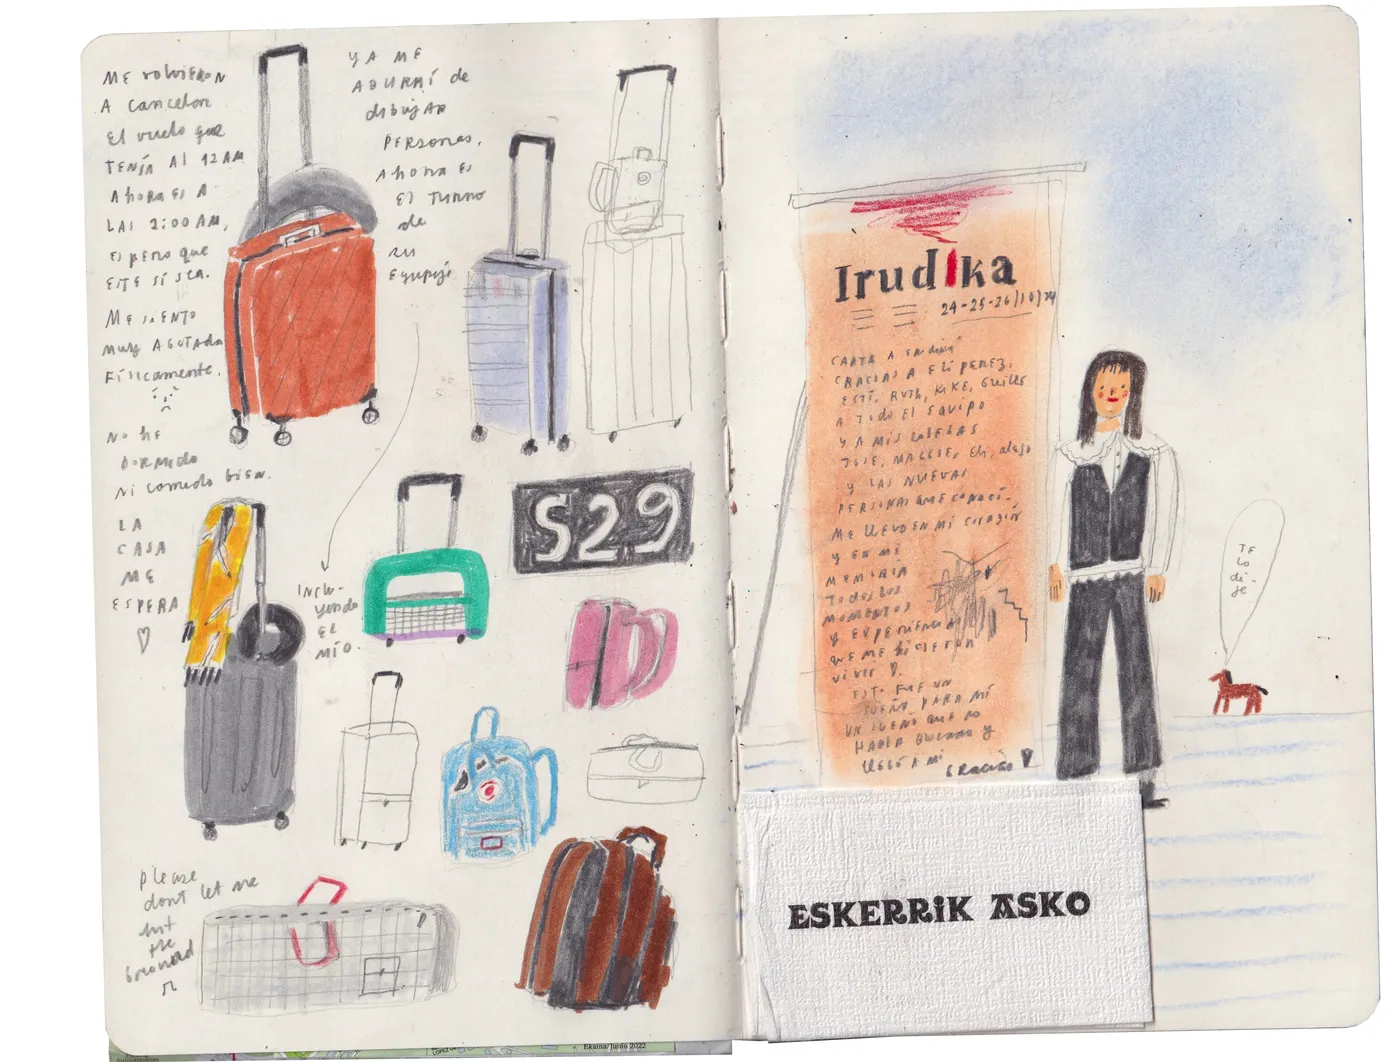 ME VOLVIERON
A cancelar
El vuelo que
TENÍA Al 12AM
Ahora es A
LAS 2:00 AM,
Espero que
ESTE SÍ SEA.
ME SIENTO
muy AGOTADA
Físicamente.
No he
DORMIDO
ni comido bien.
LA
CASA
ME
ESPERA
YA ME
ABURRÍ de
dibujAR
PERSONAS,
Ahora es
El TURNO
de
su
Equipaje
INCLU-
yendo
EL
MÍO.
S29
please
dont let me
hit
the
Ground
Irudika
24-25-26/10/24
CARTA A
GRACIAS A Eli PEREZ,
ESTI, RUTH, KIKE, Guille
A TODO El EQUIPO
Y A MIS COLEGAS
JOSE, MAGGIE, Eli,
y LAS NUEVAS
PERSONAS QUE CONOCÍ.
ME LLEVO EN MI corazón
y EN MI
MEMORIA
TODOS LOS
MOMENTOS
y EXPERIENCIA
QUE ME HICIERON
VIVIR
ESTO FUE UN
SUEÑO PARA MÍ
UN SUEÑO QUE NO
HABÍA BUSCADO y
LLEGÓ A MÍ
GRACIAS
TE
LO
di-
je
ESKERRIK ASKO
Ekaina/Junio 2022